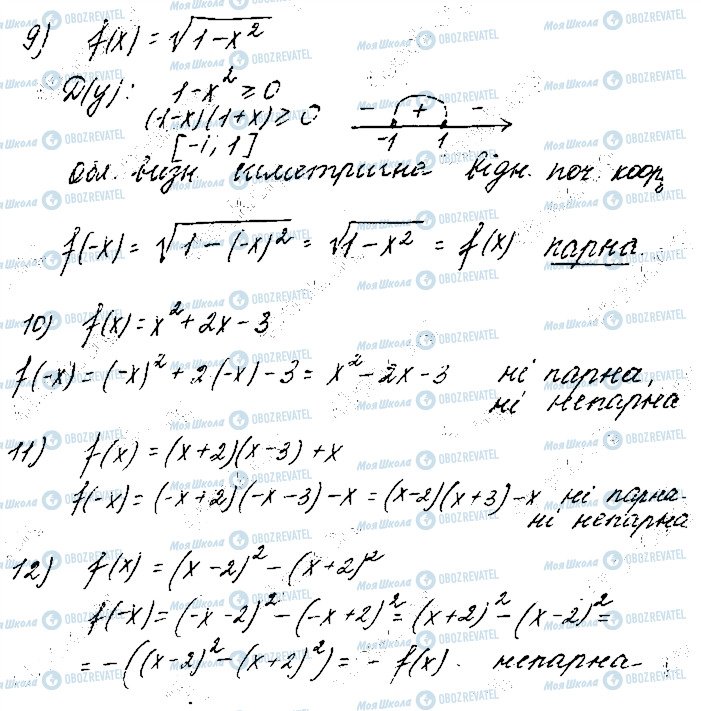 9) f(x) = √(1-x²)
Д(y): 1-x² ≥ 0
(1-x)(1+x) ≥ 0
- + -
-1 1
[-1; 1]
Обл. визн. симетрична відн. поч. коор.
f(-x) = √(1-(-x)²) = √(1-x²) = f(x) парна.
10) f(x) = x² + 2x - 3
f(-x) = (-x)² + 2(-x) - 3 = x² - 2x - 3 ні парна,
ні непарна
11) f(x) = (x+2)(x-3) + x
f(-x) = (-x+2)(-x-3) - x = (x-2)(x+3) - x ні парна.
ні непарна
12) f(x) = (x-2)² - (x+2)²
f(-x) = (-x-2)² - (-x+2)² = (x+2)² - (x-2)² =
= -((x-2)² - (x+2)²) = - f(x). непарна